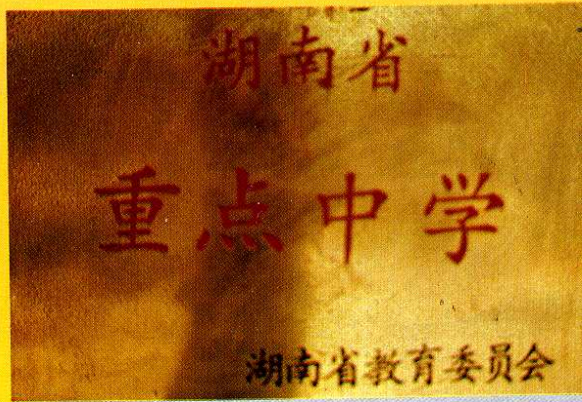 湖南省
重点中学
湖南省教育委员会